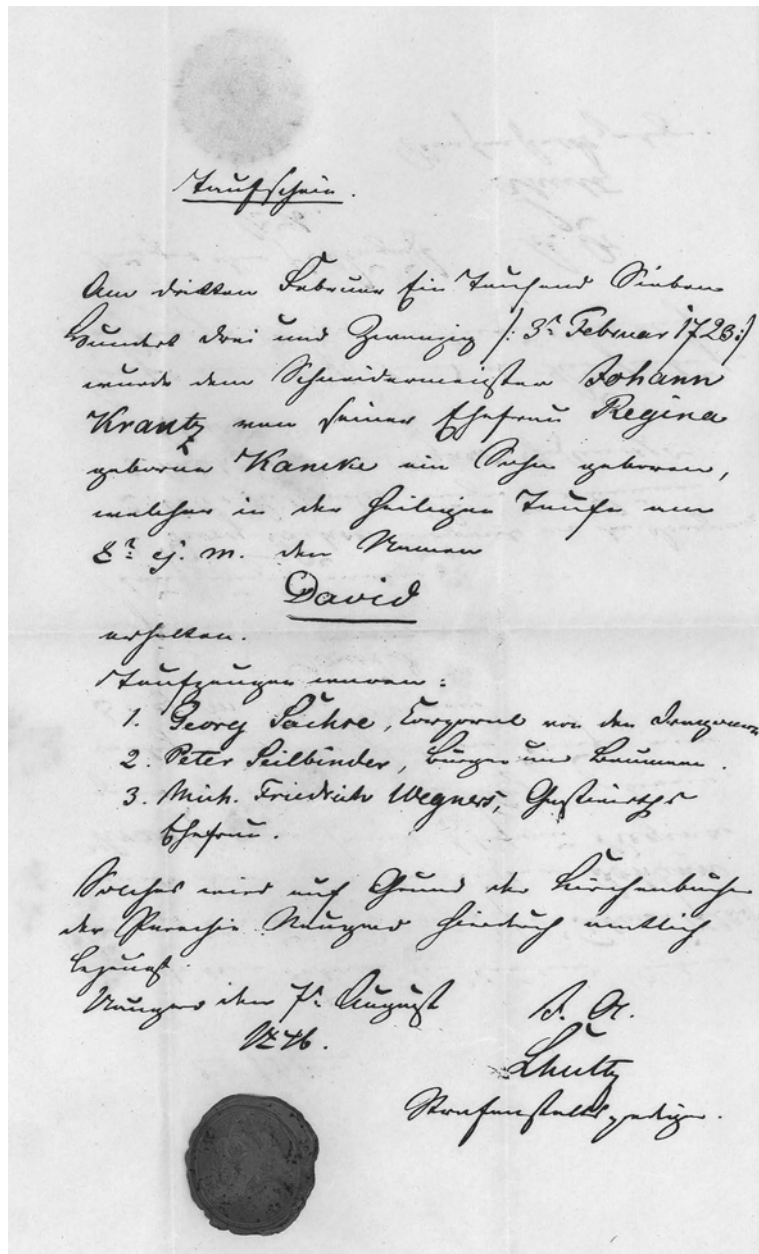 Taufschein.
Am dritten Februar Ein Tausend Sieben
Hundert drei und Zwanzig /: 3t Februar 1723 :/
wurde dem Schneidermeister Johann
Krantz von seiner Ehefrau Regina
geborne Kamke ein Sohn geboren,
welcher in der heiligen Taufe am
8t ej. m. den Namen
David
erhalten.
Taufzeugen waren:
1. Georg Sachse, Corporal von den Dragonern
2. Peter Seilbinder, Bürger und Baumann.
3. Mich. Friedrich Wegners, Gastwirths
Ehefrau.
Solches wird auf Grund der Kirchenbücher
der Parochie Naugard hierdurch amtlich
bezeugt.
Naugard den 7t August
Schultz
Strafanstaltsprediger.